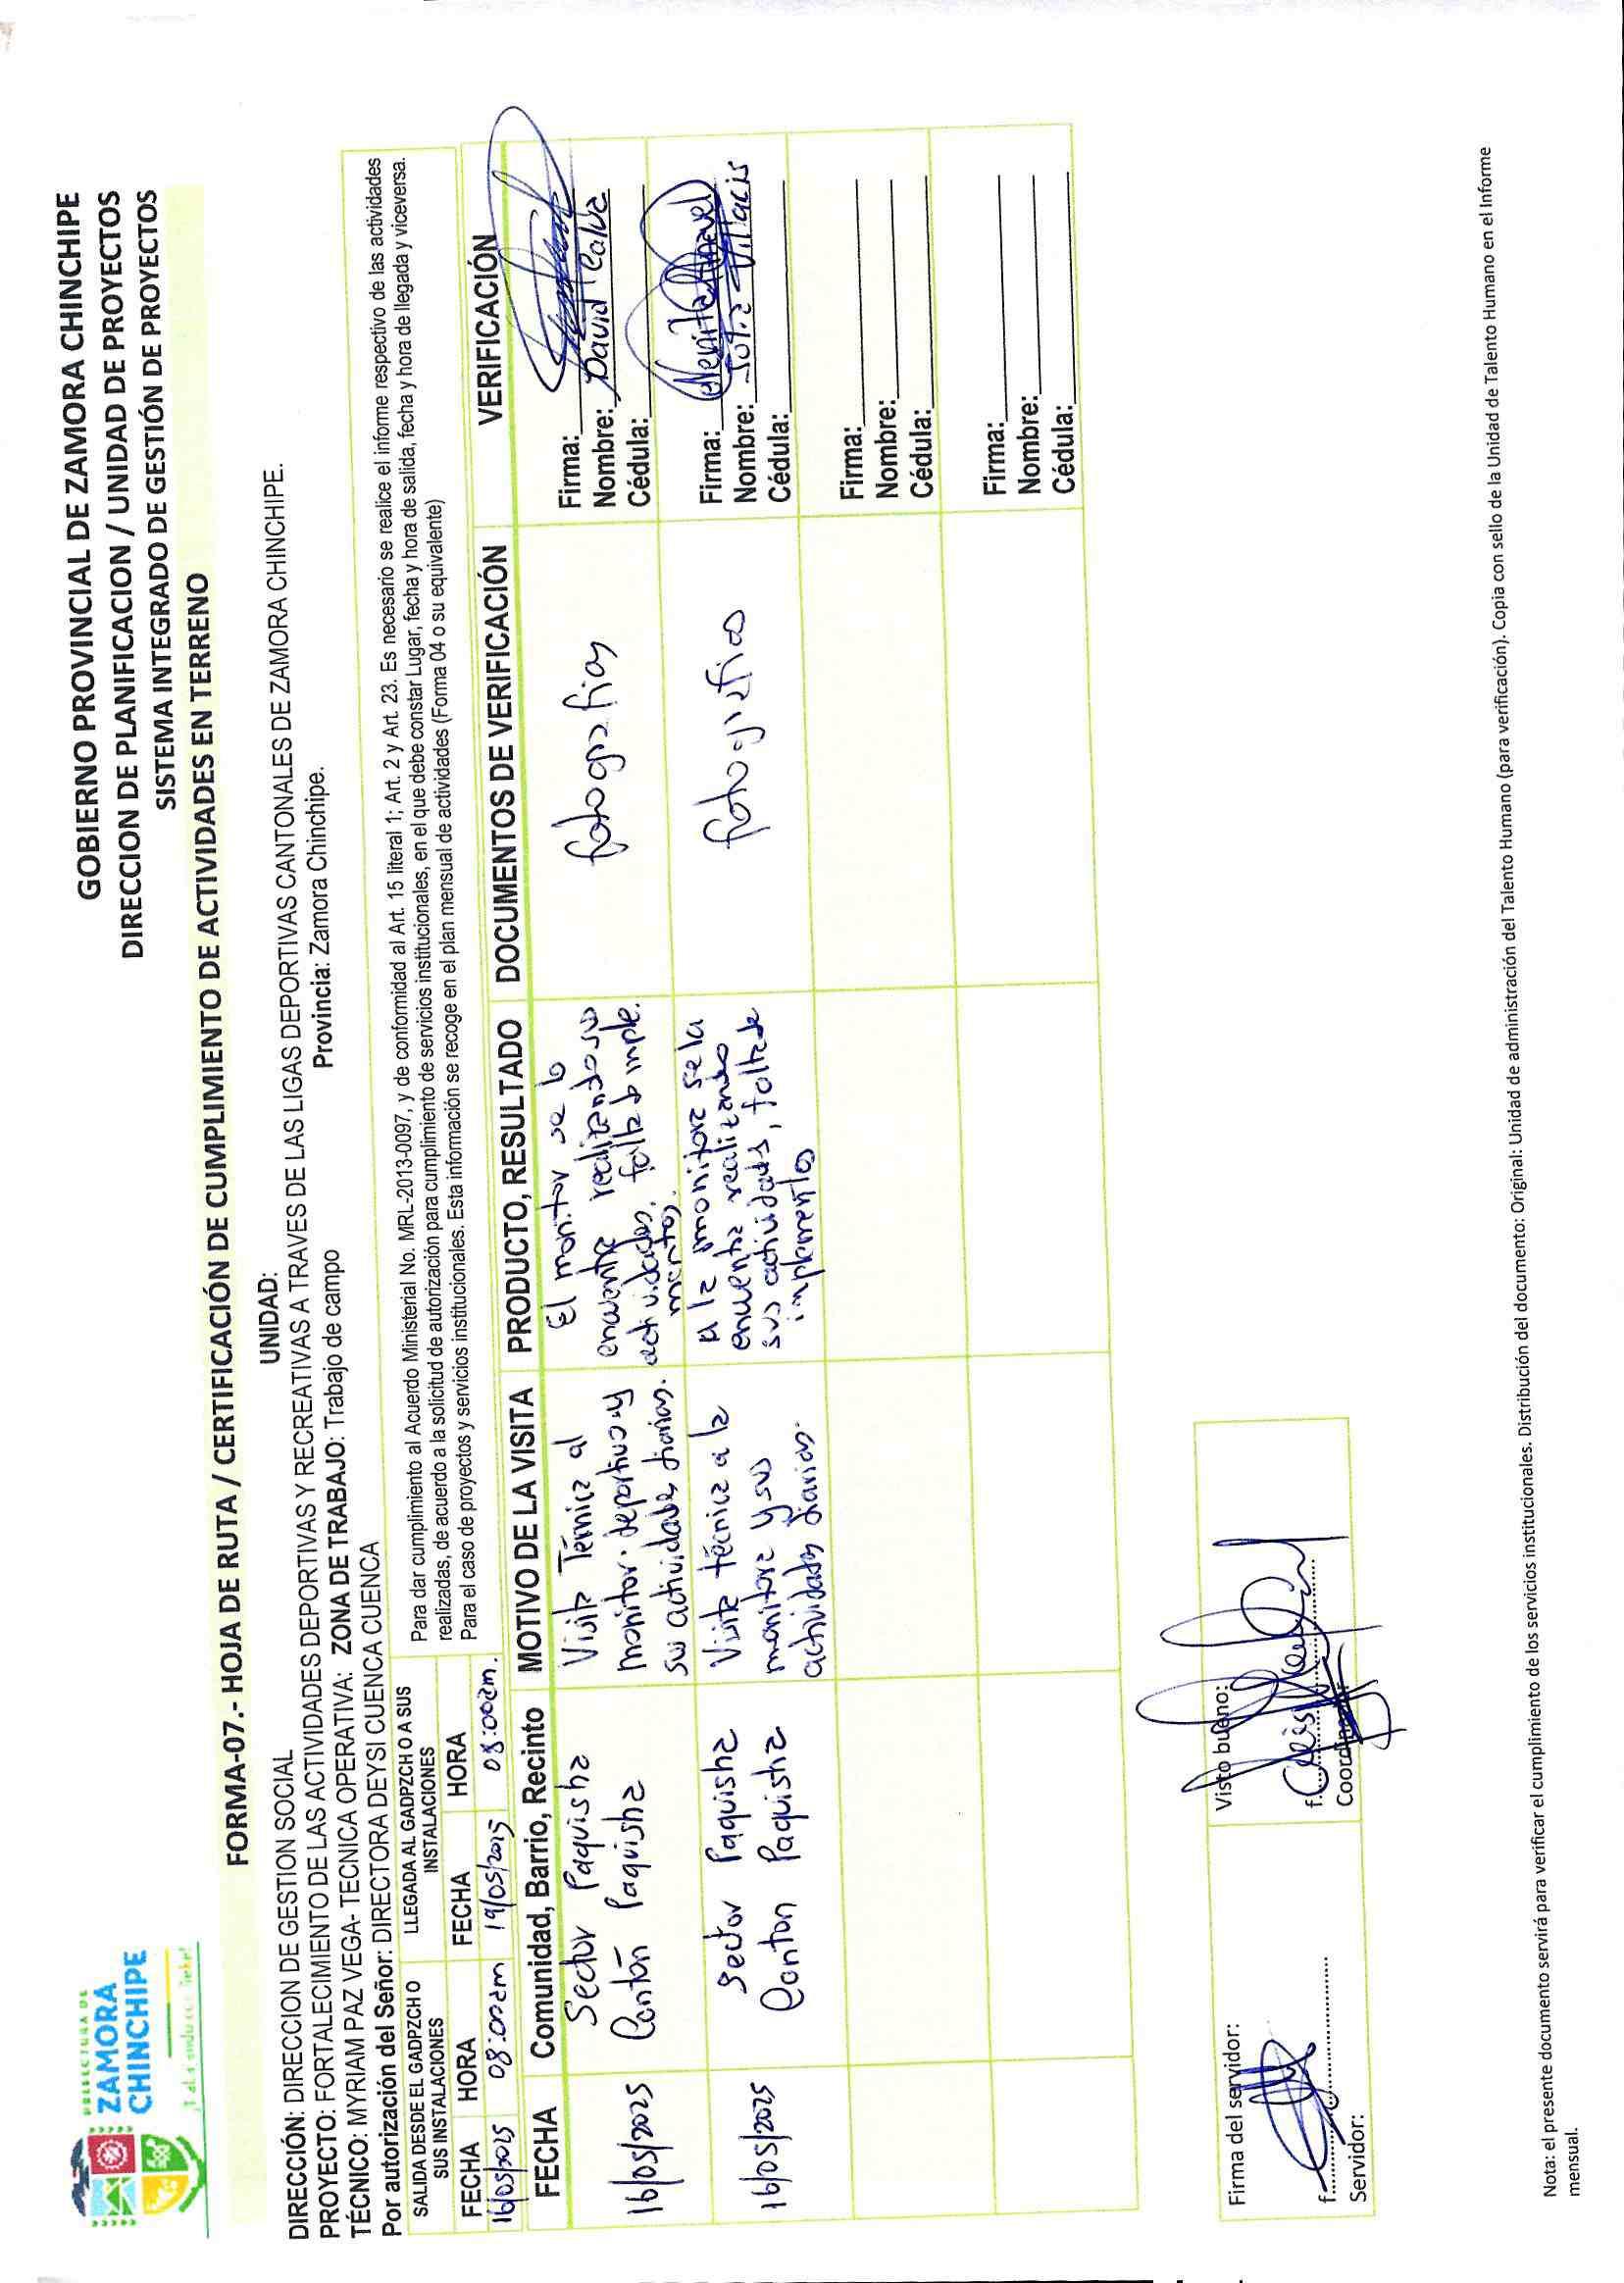 PREFECTURA DE
ZAMORA
CHINCHIPE
GOBIERNO PROVINCIAL DE ZAMORA CHINCHIPE
DIRECCION DE PLANIFICACION / UNIDAD DE PROYECTOS
SISTEMA INTEGRADO DE GESTIÓN DE PROYECTOS
FORMA-07.- HOJA DE RUTA / CERTIFICACIÓN DE CUMPLIMIENTO DE ACTIVIDADES EN TERRENO
UNIDAD:
DIRECCIÓN: DIRECCION DE GESTION SOCIAL
PROYECTO: FORTALECIMENTO DE LAS ACTIVIDADES DEPORTIVAS Y RECREATIVAS A TRAVES DE LAS LIGAS DEPORTIVAS CANTONALES DE ZAMORA CHINCHIPE.
TÉCNICO: MYRIAM PAZ VEGA- TECNICA OPERATIVA: ZONA DE TRABAJO: Trabajo de campo Provincia: Zamora Chinchipe.
Por autorización del Señor: DIRECTORA DEYSI CUENCA CUENCA
SALIDA DESDE EL GADPZCH O SUS INSTALACIONES
LLEGADA AL GADPZCH O A SUS INSTALACIONES
Para dar cumplimiento al Acuerdo Ministerial No. MRL-2013-0097, y de conformidad al Art. 15 literal 1; Art. 2 y Art. 23. Es necesario se realice el informe respectivo de las actividades
realizadas, de acuerdo a la solicitud de autorización para cumplimiento de servicios institucionales, en el que debe constar Lugar, fecha y hora de salida, fecha y hora de llegada y viceversa.
Para el caso de proyectos y servicios institucionales. Esta información se recoge en el plan mensual de actividades (Forma 04 o su equivalente)
FECHA HORA FECHA HORA
16/05/2025 08:00am 19/05/2025 08:00am.
FECHA Comunidad, Barrio, Recinto MOTIVO DE LA VISITA PRODUCTO, RESULTADO DOCUMENTOS DE VERIFICACIÓN VERIFICACIÓN
16/05/2025
Sector Paquisha
Cantón Paquisha
Visita Técnica al
monitor deportivo y
sus actividades diarias.
El monitor se lo
encuentra realizando sus
actividades, falta de imple.
mentos.
fotografias
Firma:
Nombre: David Calva
Cédula:
16/05/2025
Sector Paquisha
Canton Paquisha
Visita técnica a la
monitora y sus
actividades diarias.
a la monitora se la
encuentra realizando
sus actividades, falta de
implementos
fotografias
Firma:
Nombre:
Cédula:
Firma:
Nombre:
Cédula:
Firma:
Nombre:
Cédula:
Firma del servidor:
f.
Servidor:
Visto bueno:
f.
Coordinador
Nota: el presente documento servirá para verificar el cumplimiento de los servicios institucionales. Distribución del documento: Original: Unidad de administración del Talento Humano (para verificación). Copia con sello de la Unidad de Talento Humano en el Informe
mensual.